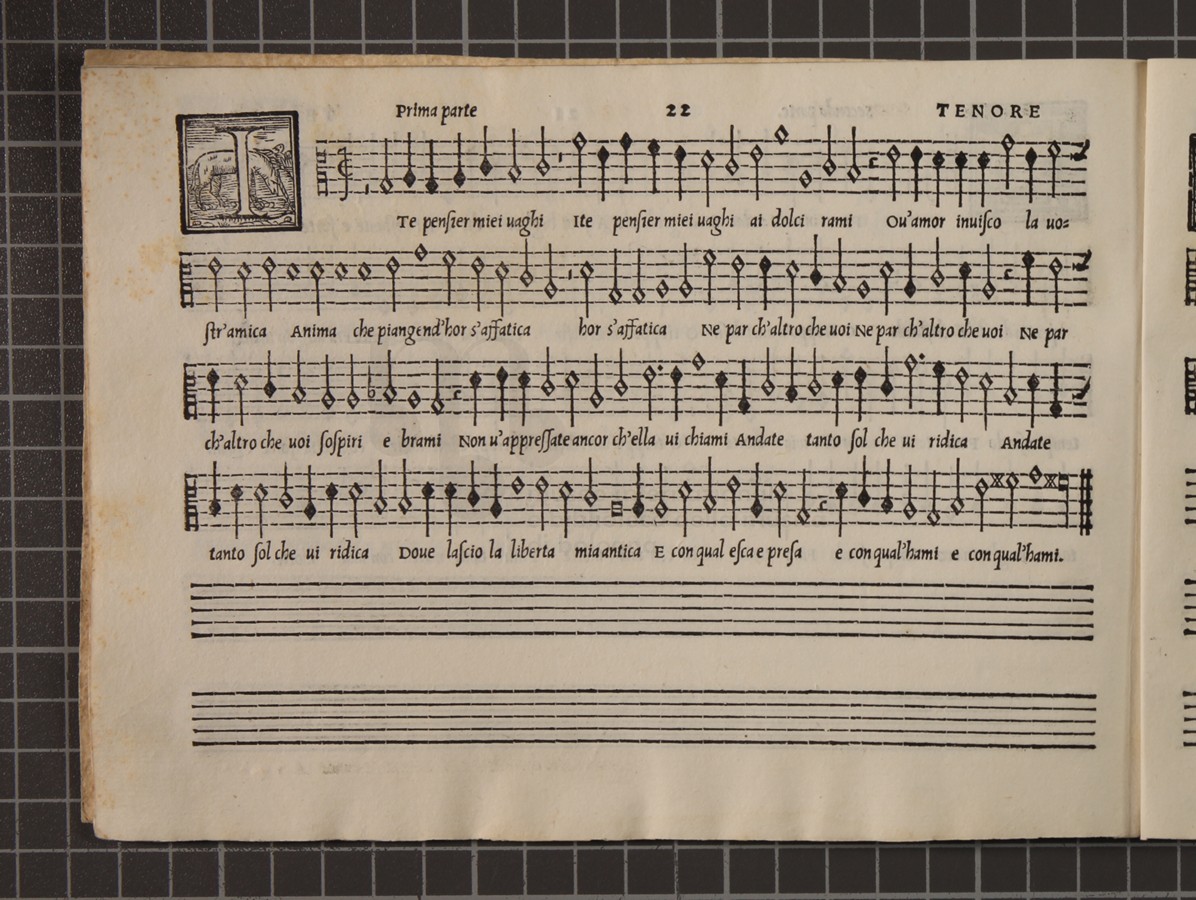 Prima parte 22 TENORE
I
Te penſier miei uaghi Ite penſier miei uaghi ai dolci rami Ou'amor inuiſco la uo=
ſtr'amica Anima che piangend'hor s'affatica hor s'affatica Ne par ch'altro che uoi Ne par ch'altro che uoi Ne par
ch'altro che uoi ſoſpiri e brami Non u'appreſſate ancor ch'ella ui chiami Andate tanto ſol che ui ridica Andate
tanto ſol che ui ridica Doue laſcio la liberta mia antica E con qual eſca e preſa e con qual'hami e con qual'hami.